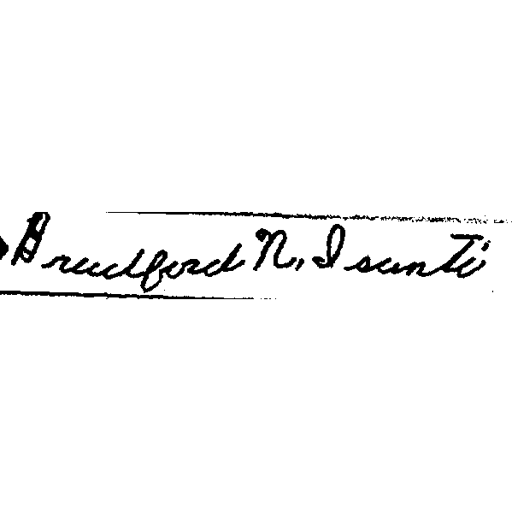 Bradford N, Isanti